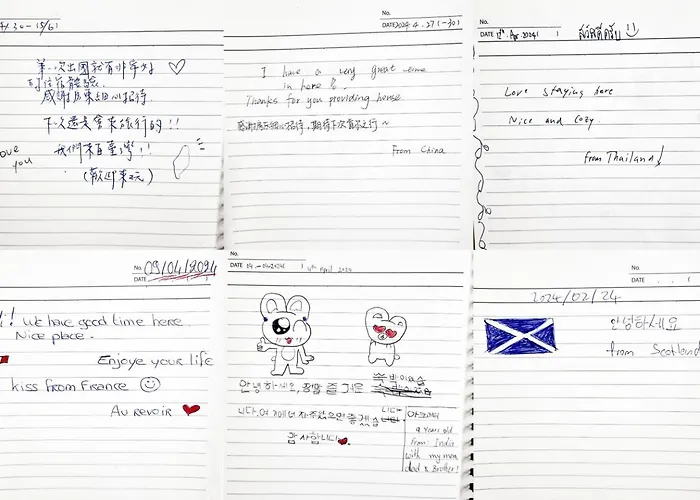 4.30-15/6)
第一次出國就有非常好
的住宿體驗.
感謝房東細心招待.
下次還是會來旅行的!!
love you
我們來自臺灣!!
(歡迎來玩)
No.
DATE 2024.4.27(-30)
I have a very great time
in here
Thanks for you providing house.
感謝房东細心招待，期待下次首尔之行~
From China
No.
DATE Apr.2024
สวัสดีครับ
Love staying here
Nice and Cozy.
from Thailand!
No. 09/04/2024
DATE
We have good time here.
Nice place.
Enjoye your life
kiss from France
Au revoir
No.
DATE 04.-04-2024
4th April 2024
안녕하세요, 정말 즐거운 숙박이었습
니다. 여기에 더 자주 있었으면 좋겠습니다
감사합니다
9 years old
from India
with my mom
dad & Brother!
No.
DATE
2024/02/24
안녕하세요
from Scotland